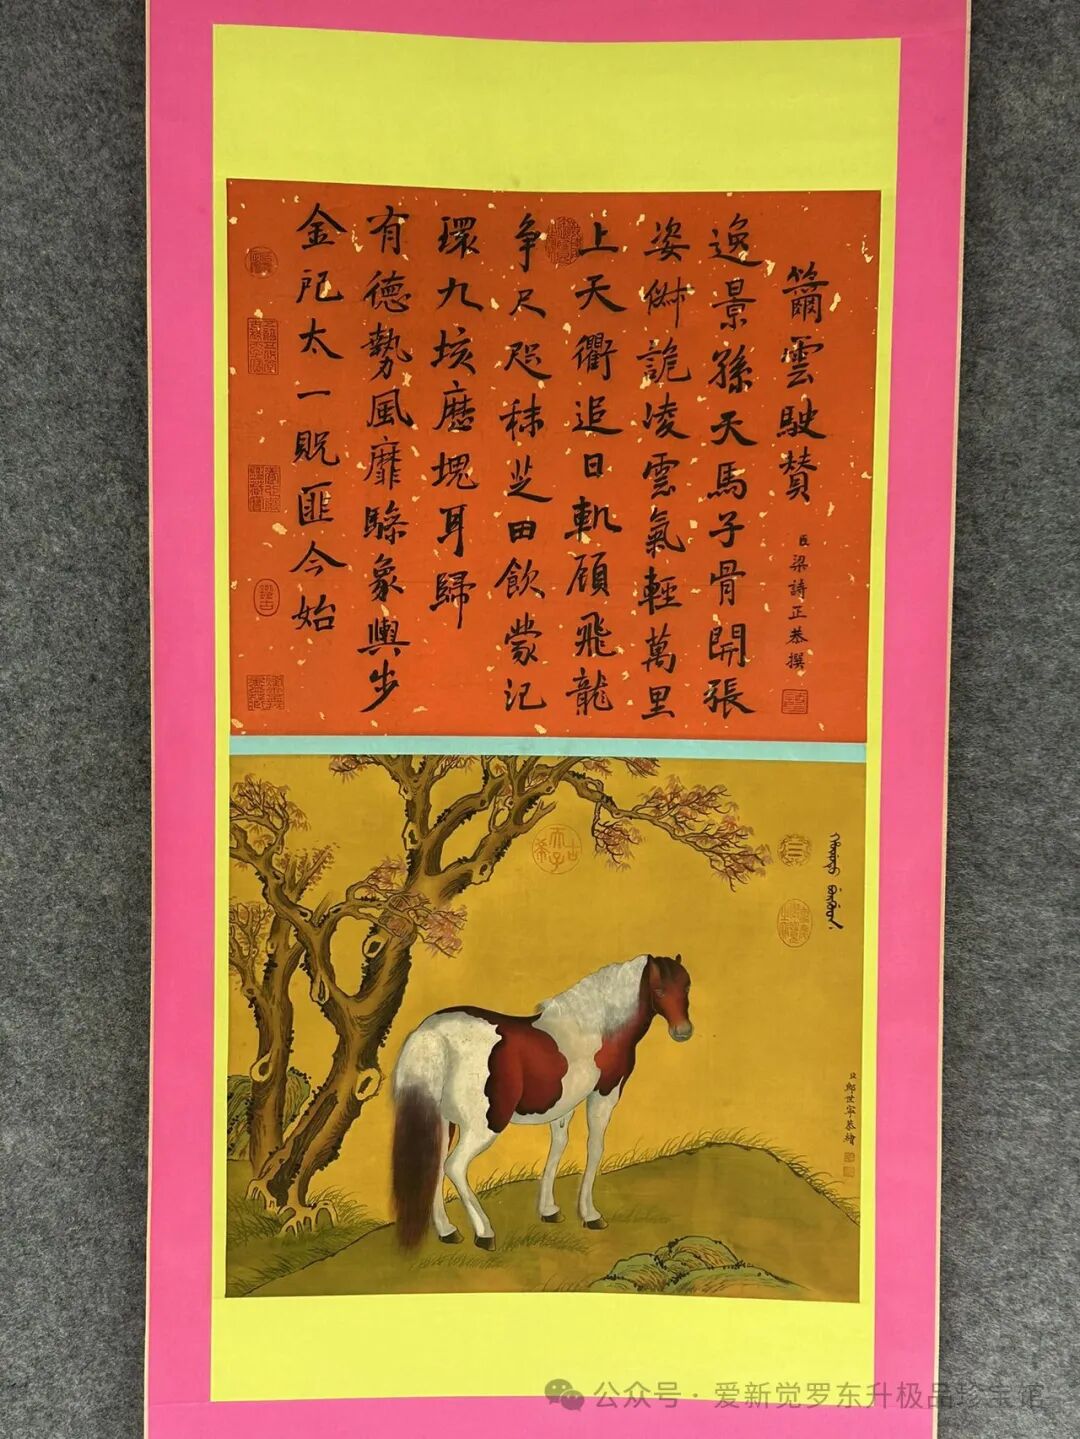 籋雲駛贊
臣梁詩正恭撰
逸景孫天馬子骨開張
姿俶詭凌雲氣輕萬里
上天衢追日軌顧飛龍
争尺咫秣芝田飲蒙汜
環九垓歷塊耳歸
有德勢風靡驂象輿步
金戺太一貺匪今始
古希天子
鑑古
臣郎世寧恭繪
公众号·爱新觉罗东升极品珍宝馆